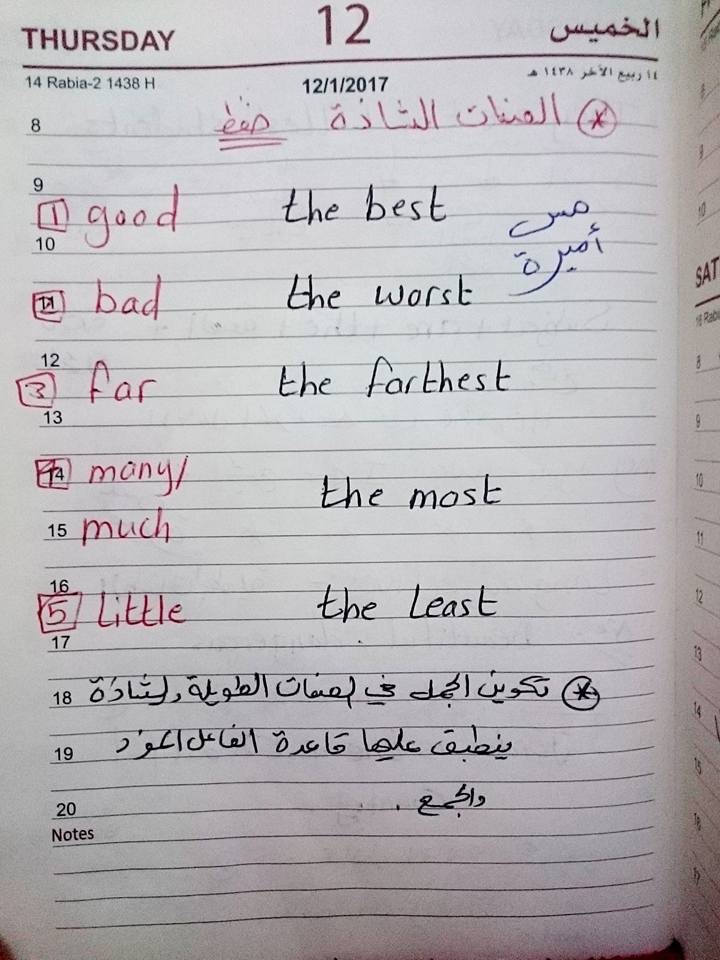 THURSDAY 12 الخميس
14 Rabia-2 1438 H 12/1/2017 ١٤ ربيع الآخر ١٤٣٨ هـ
8 * الصفات الشاذة حفظ
9
1 good the best مس
10 أميرة
2 bad the worst
12
3 far the farthest
13
14 many/ the most
15 much
16
5 Little the Least
17
18 * تكوين الجمله في الصفات الطويلة والشاذة
19 ينطبق عليها قاعدة الفاعل المفرد
20 والجمع .
Notes
SAT
8
9
10
11
12
13
14
15